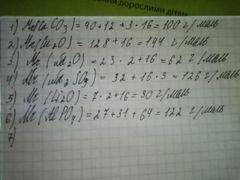 дорослими діти
1) Mr(CaCO3) = 40+12+3·16=100 г/моль
2) Mr(Cu2O) = 128+16=144 г/моль
3) Mr(Na2O) = 23·2+16=62 г/моль
4) Mr(Na2SO3) = 32+16·3=126 г/моль
5) Mr(Li2O) = 7·2+16=30 г/моль
6) Mr(AlPO4) = 27+31+64=122 г/моль
7)